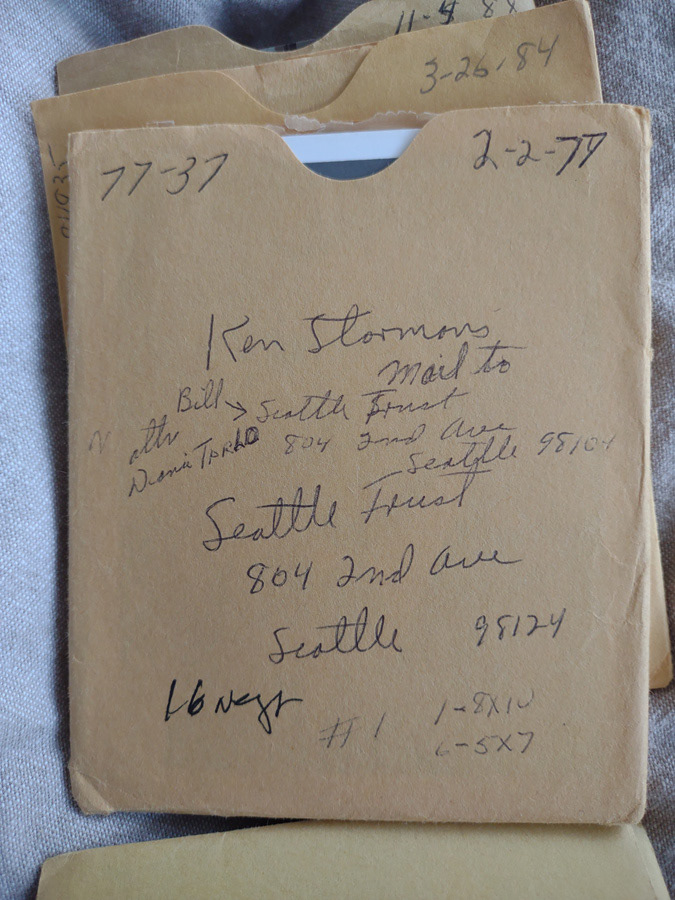 11-4 88
3-26-84
77-37 2-2-77
Ken Stormans
Mail to
Bill → Seattle Trust
attn 804 2nd Ave
Dianna Seattle 98104
Seattle Trust
804 2nd Ave
Seattle 98124
16 negs
#1 1-8X10
6-5X7